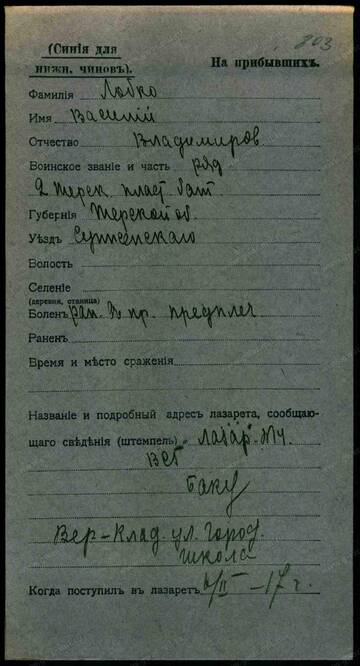 803
(Синія для нижн. чиновъ).
На прибывшихъ.
Фамилія Лобко
Имя Василій
Отчество Владимиров
Воинское званіе и часть ряд
2 Терск. пласт. бат.
Губернія Терской об.
Уѣздъ Сунженскаго
Волость
Селеніе
(деревня, станица)
Боленъ ран. в пр. предплеч
Раненъ
Время и мѣсто сраженія
Названіе и подробный адресъ лазарета, сообщаю-
щаго свѣдѣнія (штемпель) Лазар. №4.
ВСГ
Баку
Вер-Клад. ул. город.
школа
Когда поступилъ въ лазаретъ /II – 17 г.